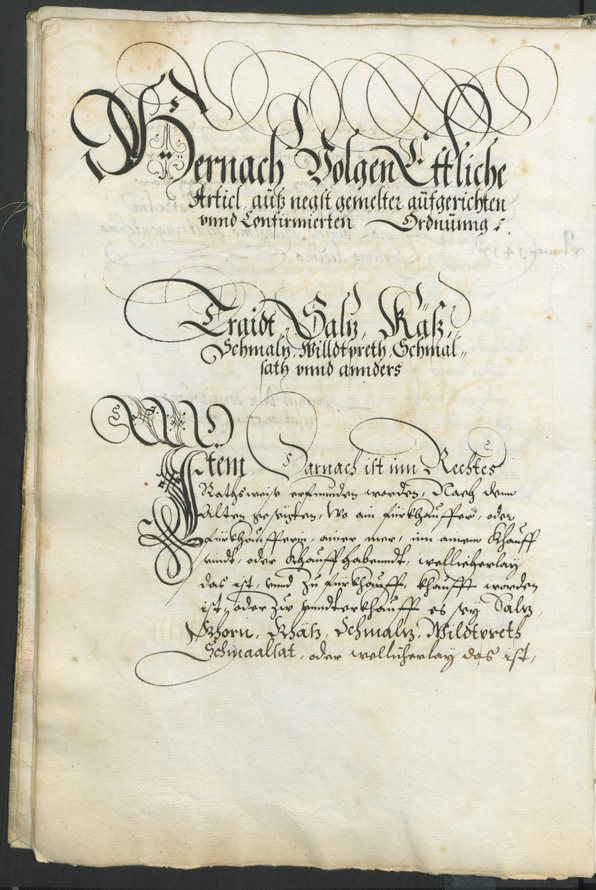 Hernach Volgen Ettliche
Articl, auß negst gemelter aufgerichten
vnnd Confirmierten Ordnunng.
Traidt, Salz, Käß,
Schmalz, Willdtpreth, Schmal-
sath vnnd annders
Item Darnach ist inn Rechtes
Rathsweiß erfunnden worden, Nach dem
Alten, Wo ain fürkhauffer, oder
fürkhaufferin, ainer mer, inn ainem Khauff
findt, oder Khauff habenndt, wellicherlay
das ist, vnnd zu fürkhauff, khaufft worden
ist, oder zu hunderkhauff es sey Salz,
Khorn, Khäß, Schmalz, Wildtpreth
Schmaalsat, oder wellicherlay das ist,